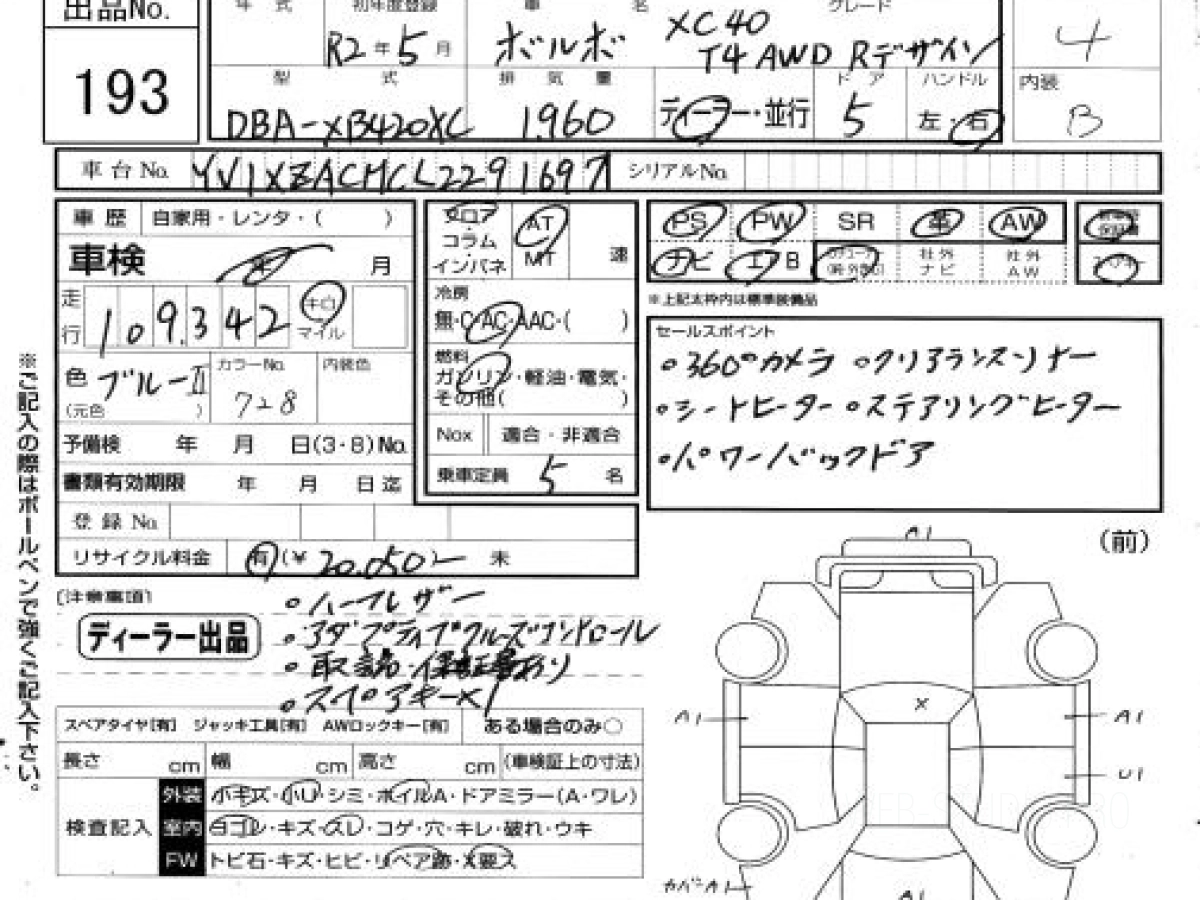 出品No.
193
年 式
初年度登録
R2年5月
車 名
ボルボ
XC40
T4 AWD Rデザイン
グレード
4
型 式
DBA-XB420XC
排 気 量
1960
ディーラー・並行
ドア
5
ハンドル
左・右
内装
B
車台No.
YV1XZACMCL2291697
シリアルNo.
車歴
自家用・レンタ・( )
車検
年 月
走行
109,342
キロ
マイル
色
ブルーII
(元色 )
カラーNo.
728
内装色
予備検 年 月 日(3・8)No.
書類有効期限 年 月 日迄
登録No.
リサイクル料金
有(¥ 20,050)- 未
フロア
コラム
インパネ
AT
MT
速
冷房
無・C・AC・AAC・( )
燃料
ガソリン・軽油・電気・
その他( )
Nox 適合・非適合
乗車定員 5 名
PS PW SR 革 AW
ナビ エアB
社外ナビ
社外AW
保証書
※上記太枠内は標準装備品
セールスポイント
・360°カメラ ・クリアランスソナー
・シートヒーター ・ステアリングヒーター
・パワーバックドア
※ご記入の際はボールペンで強くご記入下さい。
[注意事項]
ディーラー出品
・ハーフレザー
・アダプティブクルーズコントロール
・取説・保証書あり
・スペアキー×1
スペアタイヤ[有] ジャッキ工具[有] AWロックキー[有] ある場合のみ○
長さ cm 幅 cm 高さ cm (車検証上の寸法)
検査記入
外装 小キズ・小U・シミ・ホイルA・ドアミラー(A・ワレ)
室内 ヨゴレ・キズ・スレ・コゲ・穴・キレ・破れ・ウキ
FW トビ石・キズ・ヒビ・リペア跡・X要ス
(前)
A1
X
A1
A1
U1
カバーA1
A1